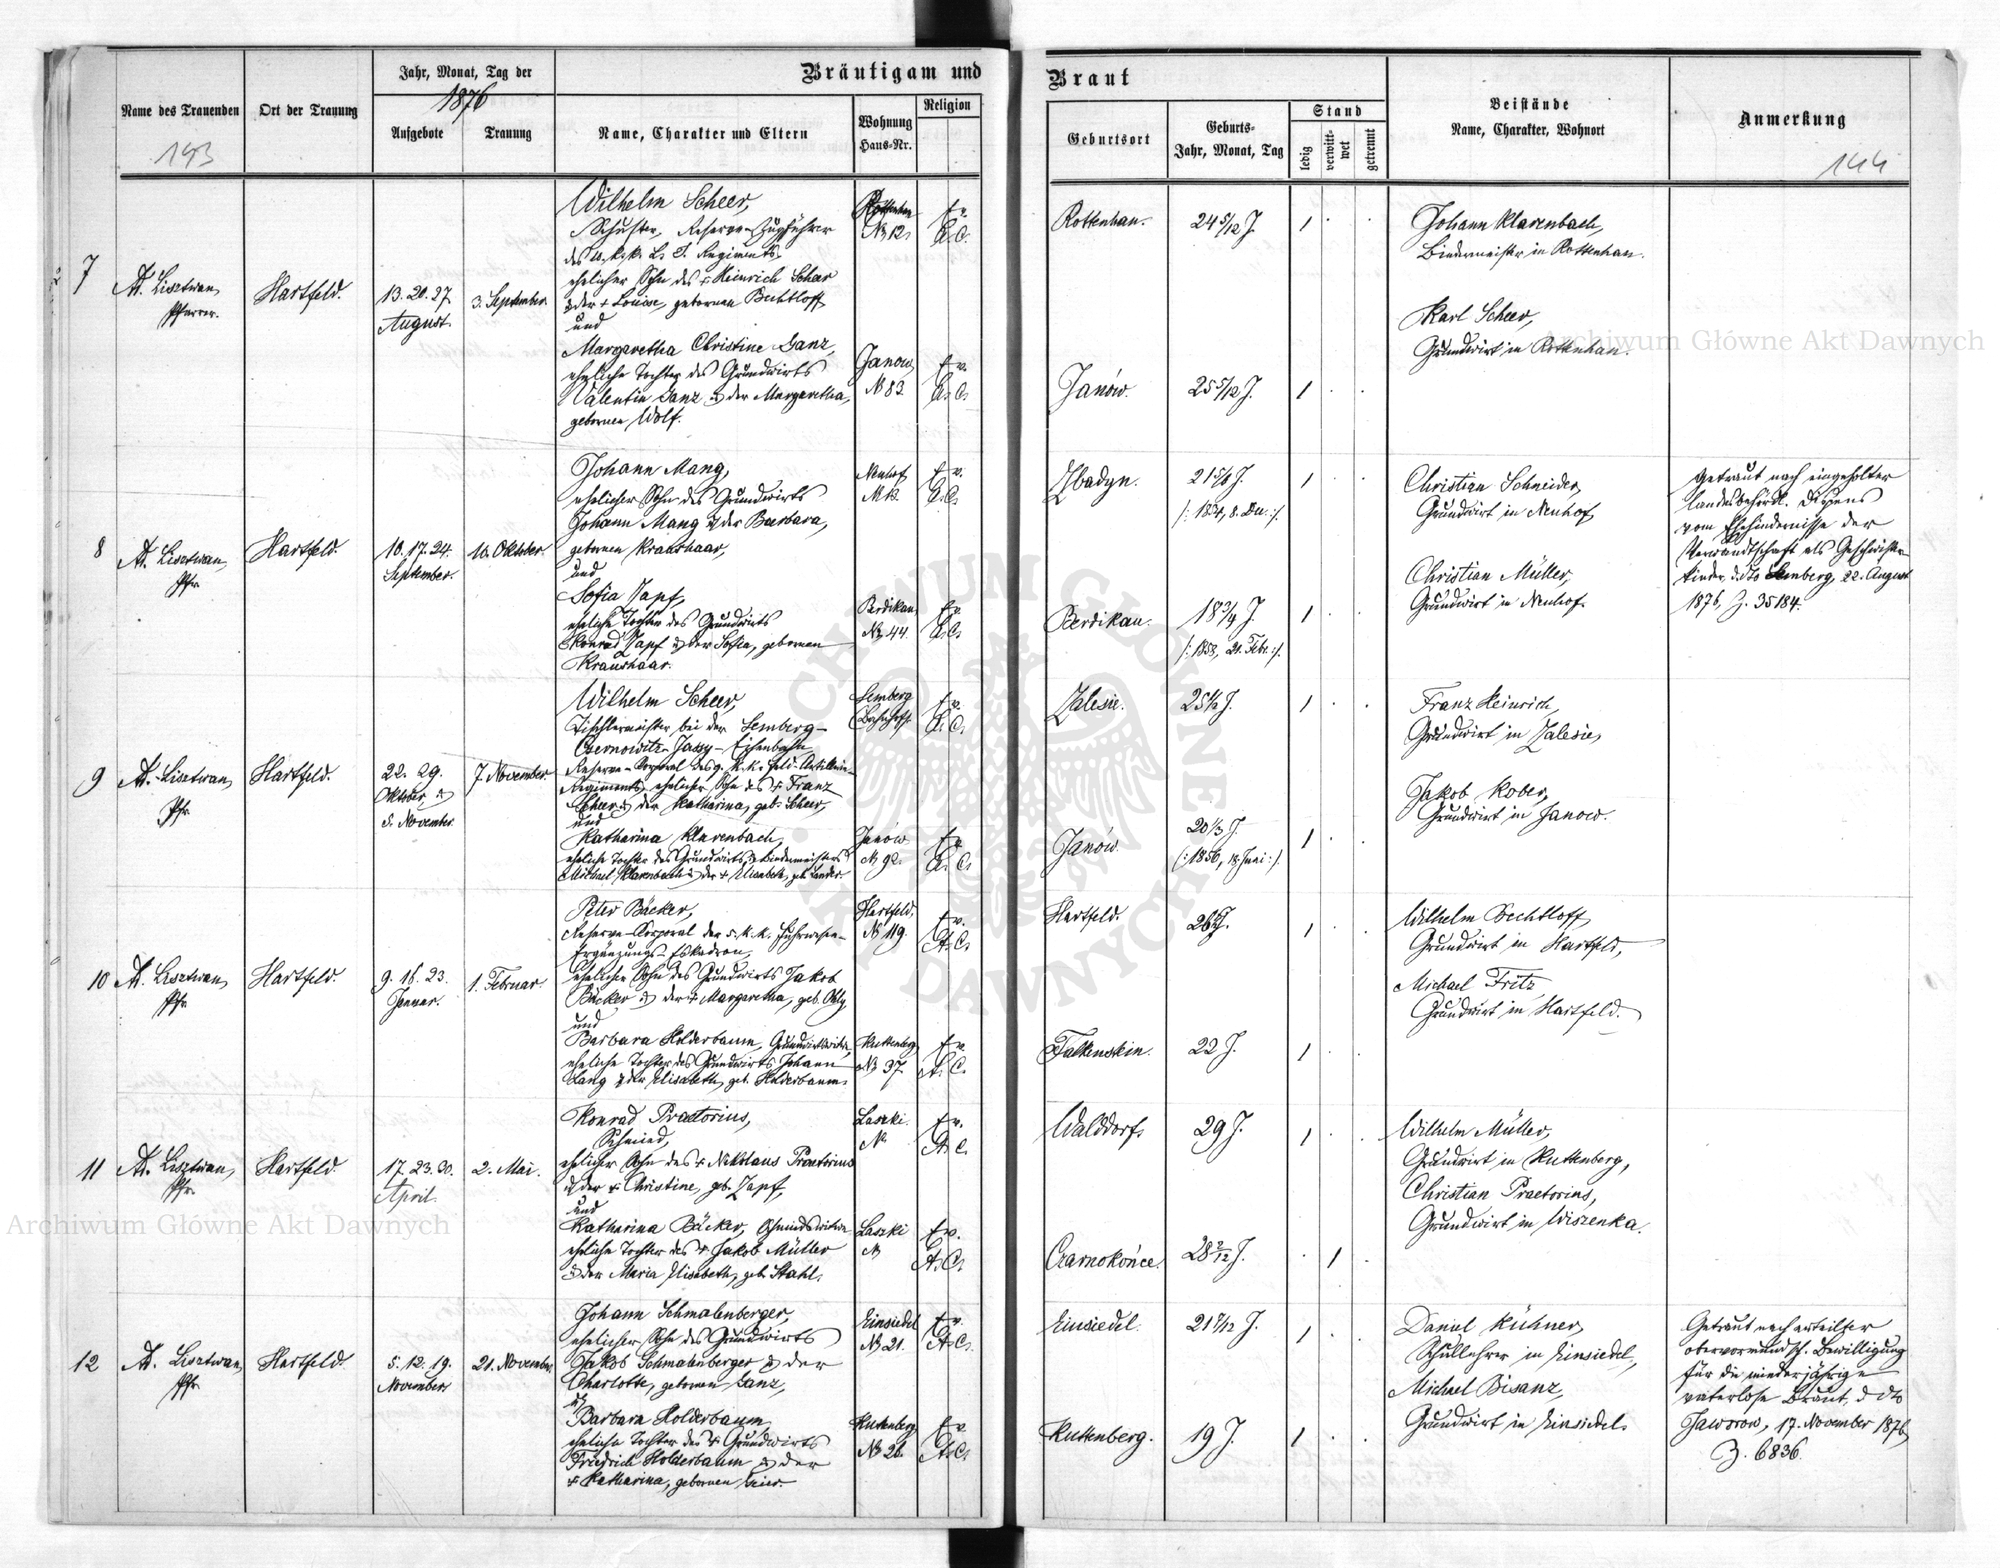 Jahr, Monat, Tag der
1876
Bräutigam und
Name des Trauenden
Ort der Trauung
Aufgebote
Trauung
Name, Charakter und Eltern
Wohnung
Haus-Nr.
Religion
193
Braut
Geburtsort
Geburts-
Jahr, Monat, Tag
Stand
ledig
verwitt-
wet
getrennt
Beistände
Name, Charakter, Wohnort
Anmerkung
144
7
Ad. Lisztwan,
Pfarrer.
Hartfeld.
13. 20. 27.
August.
3. September.
Wilhelm Scheer,
Schuster, Reserve-Zugsführer
ehelicher Sohn des + Heinrich Scheer
& der + Louise, gebornen Bechtloff
und
Margaretha Christine Ganz,
eheliche Tochter des Grundwirts
Valentin Ganz & der Margaretha,
gebornen Wolf.
Rottenhan
№ 12.
Ev.
A. C.
Janow
№ 83.
Ev.
A. C.
Rottenhan.
24 5/12 J.
1
Janów.
25 5/12 J.
1
Johann Klarenbach,
Bindermeister in Rottenhan.
Karl Scheer,
Grundwirt in Rottenhan.
8
Ad. Lisztwan,
Pfr.
Hartfeld.
10. 17. 24.
September.
10. Oktober.
Johann Mang,
ehelicher Sohn des Grundwirts
Johann Mang & der Barbara,
gebornen Kraushaar,
und
Sofia Zapf,
eheliche Tochter des Grundwirts
Konrad Zapf & der Sofia, gebornen
Kraushaar.
Neuhof
Ev.
A. C.
Berdikau
№ 44.
Ev.
A. C.
Zbadyn.
1
Berdikau.
18 3/4 J.
/: 1858, 21. Febr. :/
1
Christian Schneider,
Grundwirt in Neuhof,
Christian Müller,
Grundwirt in Neuhof.
Getraut nach eingeholter
landesbehördl. Dispens
vom Ehehindernisse der
Verwandtschaft als Geschwister-
kinder, ddto Lemberg, 22. August
1876, Z. 35184.
9
Ad. Lisztwan,
Pfr.
Hartfeld.
22. 29.
Oktober, &
5. November.
7. November
Wilhelm Scheer,
Tischlermeister bei der Lemberg-
Czernowitz-Jassy-Eisenbahn
Reserve-Korporal des 9. k. k. Feld-Artillerie-
Regiments, ehelicher Sohn des + Franz
Scheer & der Katharina, geb. Scheer,
und
Katharina Klarenbach,
eheliche Tochter des Grundwirts & Bindermeisters
Michael Klarenbach & der + Elisabeth, geb. Lander.
Lemberg
Bahnhof
Ev.
A. C.
Janów
№ 92.
Ev.
A. C.
Zalesie.
1
Janów.
20 1/3 J.
(: 1856, 18. Juni :)
1
Franz Heinrich,
Grundwirt in Zalesie,
Jakob Kober,
Grundwirt in Janow.
10
Ad. Lisztwan,
Pfr.
Hartfeld.
9. 16. 23.
Januar.
1. Februar.
Peter Bäcker,
Reserve-Korporal der 5. k. k. Fuhrwesen-
Ergänzungs-Eskadron,
ehelicher Sohn des Grundwirts Jakob
Bäcker & der + Margaretha, geb. Obly
und
Barbara Holderbaum, Grundwirtswitwe,
eheliche Tochter des Grundwirts Johann
Lang & der Elisabeth, geb. Holderbaum.
Hartfeld,
№ 119.
Ev.
A. C.
Kuttenberg
№ 37.
Ev.
A. C.
Hartfeld.
1
Falkenstein.
22 J.
1
Wilhelm Bechtloff,
Grundwirt in Hartfeld,
Michael Fritz
Grundwirt in Hartfeld.
11
Ad. Lisztwan,
Pfr.
Hartfeld
17. 23. 30.
April.
2. Mai.
Konrad Praetorius,
Schmied,
ehelicher Sohn des + Nikolaus Praetorius
& der + Christine, geb. Zapf,
und
Katharina Bäcker, Schmiedswitwe
eheliche Tochter des + Jakob Müller
& der Maria Elisabeth, geb. Stahl.
Laszki.
№
Ev.
A. C.
Laszki
№
Ev.
A. C.
Walddorf.
29 J.
1
Czarnokońce.
28 2/12 J.
1
Wilhelm Müller,
Grundwirt in Kuttenberg,
Christian Praetorius,
Grundwirt in Wiszenka.
12
Ad. Lisztwan,
Pfr.
Hartfeld.
5. 12. 19.
November.
21. November.
Johann Schmalenberger,
ehelicher Sohn des Grundwirts
Jakob Schmalenberger & der
Charlotte, gebornen Ganz,
&
Barbara Holderbaum
eheliche Tochter des + Grundwirts
Friedrich Holderbaum & der
+ Katharina, gebornen Beier.
Einsiedel
№ 21.
Ev.
A. C.
Kuttenberg
№ 26.
Ev.
A. C.
Einsiedel.
1
Kuttenberg.
19 J.
1
Daniel Kühner,
Schullehrer in Einsiedel,
Michael Bisanz,
Grundwirt in Einsiedel.
Getraut nach erteilter
obervormundsch. Bewilligung
für die minderjährige
vaterlose Braut, ddto
Jaworow, 17. November 1876,
Z. 6836.
Archiwum Główne Akt Dawnych
Archiwum Główne Akt Dawnych
ARCHIWUM GŁÓWNE AKT DAWNYCH